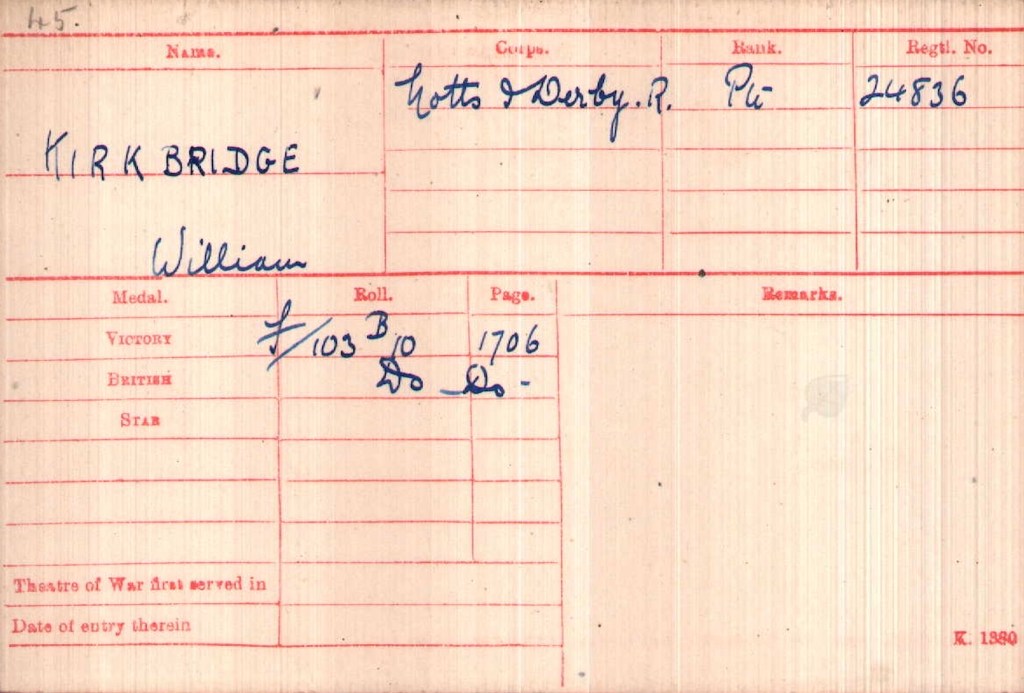 45.
Name. Corps. Rank. Regtl. No.
Notts & Derby. R. Pte 24836
KIRKBRIDGE
William
Medal. Roll. Page. Remarks.
VICTORY J/103 B 10 1706
BRITISH Do -Do-
STAR
Theatre of War first served in
Date of entry therein
K. 1380